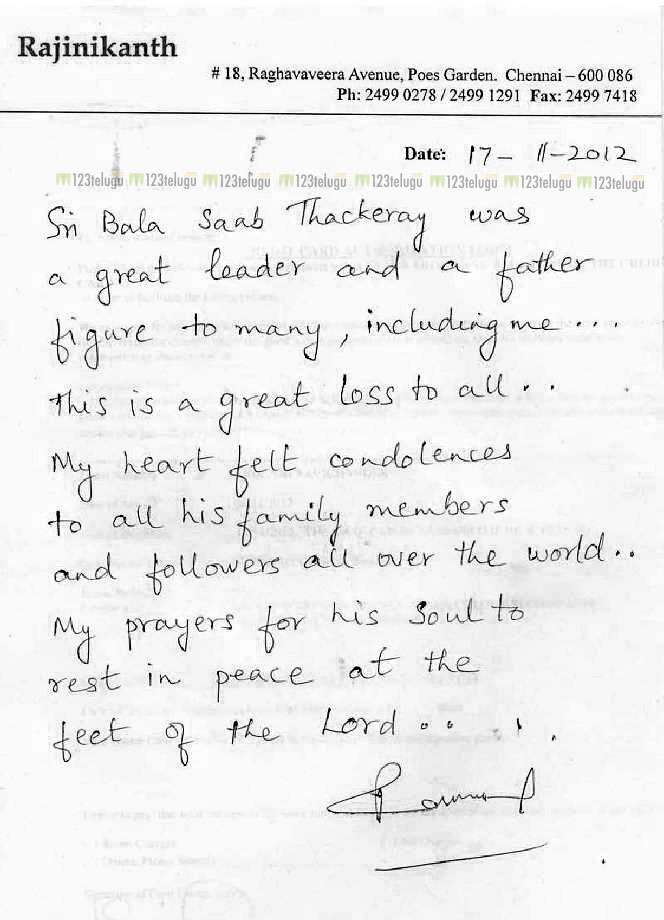 Rajinikanth
# 18, Raghavaveera Avenue, Poes Garden. Chennai – 600 086
Ph: 2499 0278 / 2499 1291 Fax: 2499 7418
Date: 17 – 11 – 2012
123telugu 123telugu 123telugu 123telugu 123telugu 123telugu 123telugu 123telugu
Sri Bala Saab Thackeray was
a great leader and a father
figure to many, including me....
This is a great loss to all..
My heart felt condolences
to all his family members
and followers all over the world..
My prayers for his soul to
rest in peace at the
feet of the Lord....